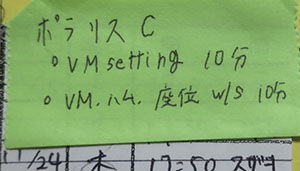 ポラリス C
○ VM setting 10分
○ VM. ハム. 座位 w/s 10分
11/24 木 17:50